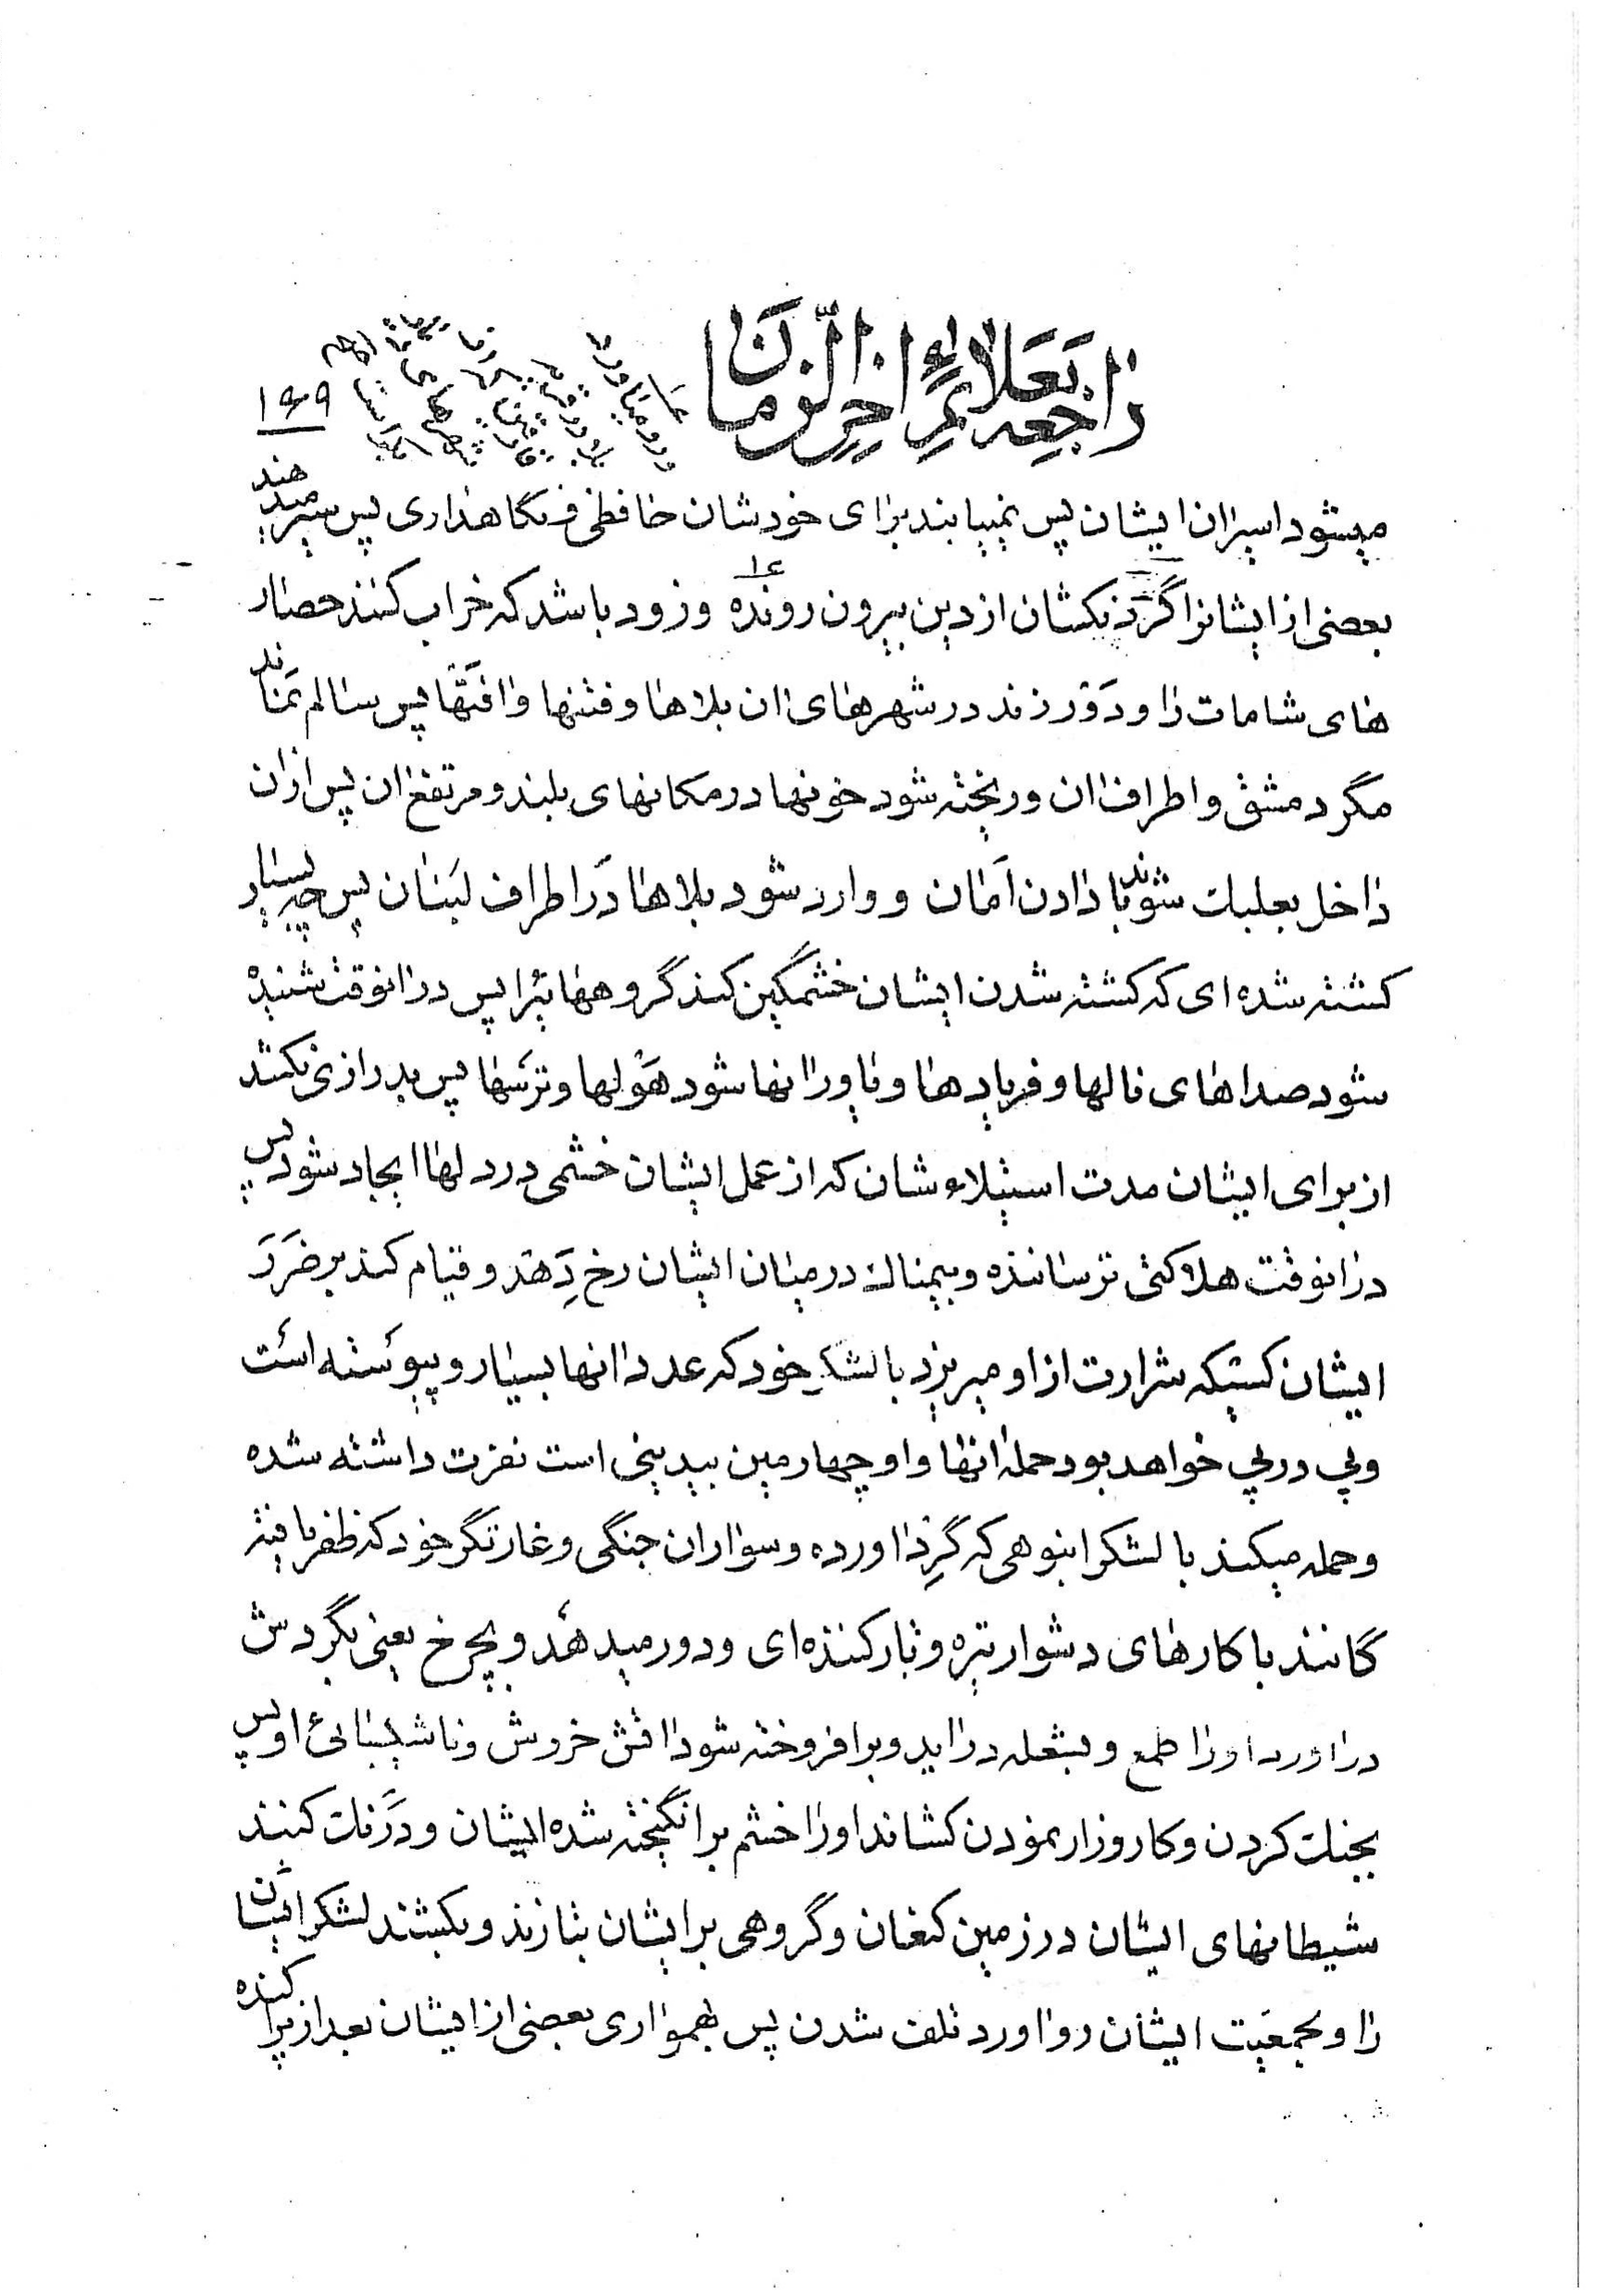 راجعه بعلائم اخر الزمان
۱۶۹
میشود اسیران ایشان پس نمییابند برای خودشان حافظی و نگاهداری پس سر میبرند
بعضی از ایشانرا گردنکشان از دین بیرون رونده وزود باشد که خراب کنند حصار
های شامات را و دَوْر زند در شهرهای ان بلاها و فتنها و افتها پس سالم نماند
مگر دمشق و اطراف ان و ریخته شود خونها در مکانهای بلند و مرتفع ان پس ازان
داخل بعلبک شوند با دادن اَمان و وارد شود بلاها دَر اطراف لبنان پس چه بسیار
کشته شده ای که کشته شدن ایشان خشمگین کند گروههائیرا پس درانوقت شنیده
شود صداهای نالها و فریادها و یاور انها شود هَوْلها و ترسها پس بدرازی نکشد
از برای ایشان مدت استیلاءشان که از عمل ایشان خشمی در دلها ایجاد شود پس
درانوقت هلاکتی ترساننده و بیمناک در میان ایشان رخ دِهد و قیام کند بر ضَرَرَ
ایشان کسیکه شرارت از او میریزد با لشکرِ خود که عدد انها بسیار و پیوسته است
و پی در پی خواهد بود حملۀ انها و او چهارمین بیدینی است نفرت داشته شده
و حمله میکند با لشکر انبوهی که گِرْد اورده و سواران جنگی و غارتگر خود که ظفریافته
گانند با کارهای دشوار تیره و تارکننده ای و دور میدهد و بچرخ یعنی بگردش
دراورد او را طمع و بشعله دراید و برافروخته شود اتش خروش و ناشکیبائی او پس
بجنک کردن و کارزار نمودن کشاند او را خشم برانگیخته شده ایشان و دَرَنک کنند
شیطانهای ایشان در زمین کنعان و گروهی بر ایشان بتازند و بکشند لشکر ایشان
را و بجمعیت ایشان روا اورد تلف شدن پس بهمواری بعضی از ایشان بعد از پراکنده